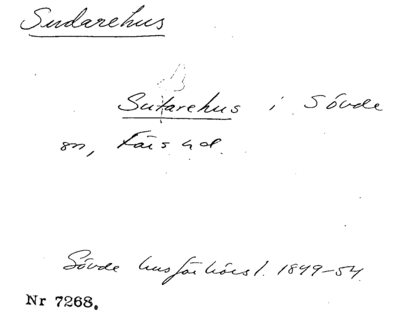 Sudarehus
Sutarehus i Sövde
sn, Färs hd.
Sövde husförhörsl. 1849-54.
Nr 7268.